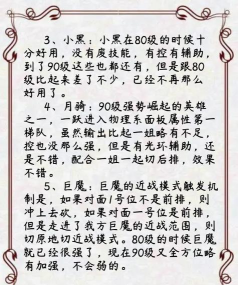 3、小黑：小黑在80级的时候十
分好用，没有废技能，有控有辅助，
到了90级这些也都还有，但是跟80
级比起来差了不少，已经不再那么
好用了。
4、月骑：90级强势崛起的英雄
之一，一跃进入物理系面板属性第一
梯队，虽然输出比起一姐略有不足，
控也没那么强，但是有光环辅助，还
是不错，配合一姐一起切后排，效果
不错。
5、巨魔：巨魔的近战模式触发机
制是，如果对面1号位不是前排，则
冲上去砍，如果对面一号位是前排，
但是走进了我方巨魔的近战范围，则
切原地切近战模式。80级的时候巨魔
就已经很强了，现在90级又全方位略
有加强，不会弱的。